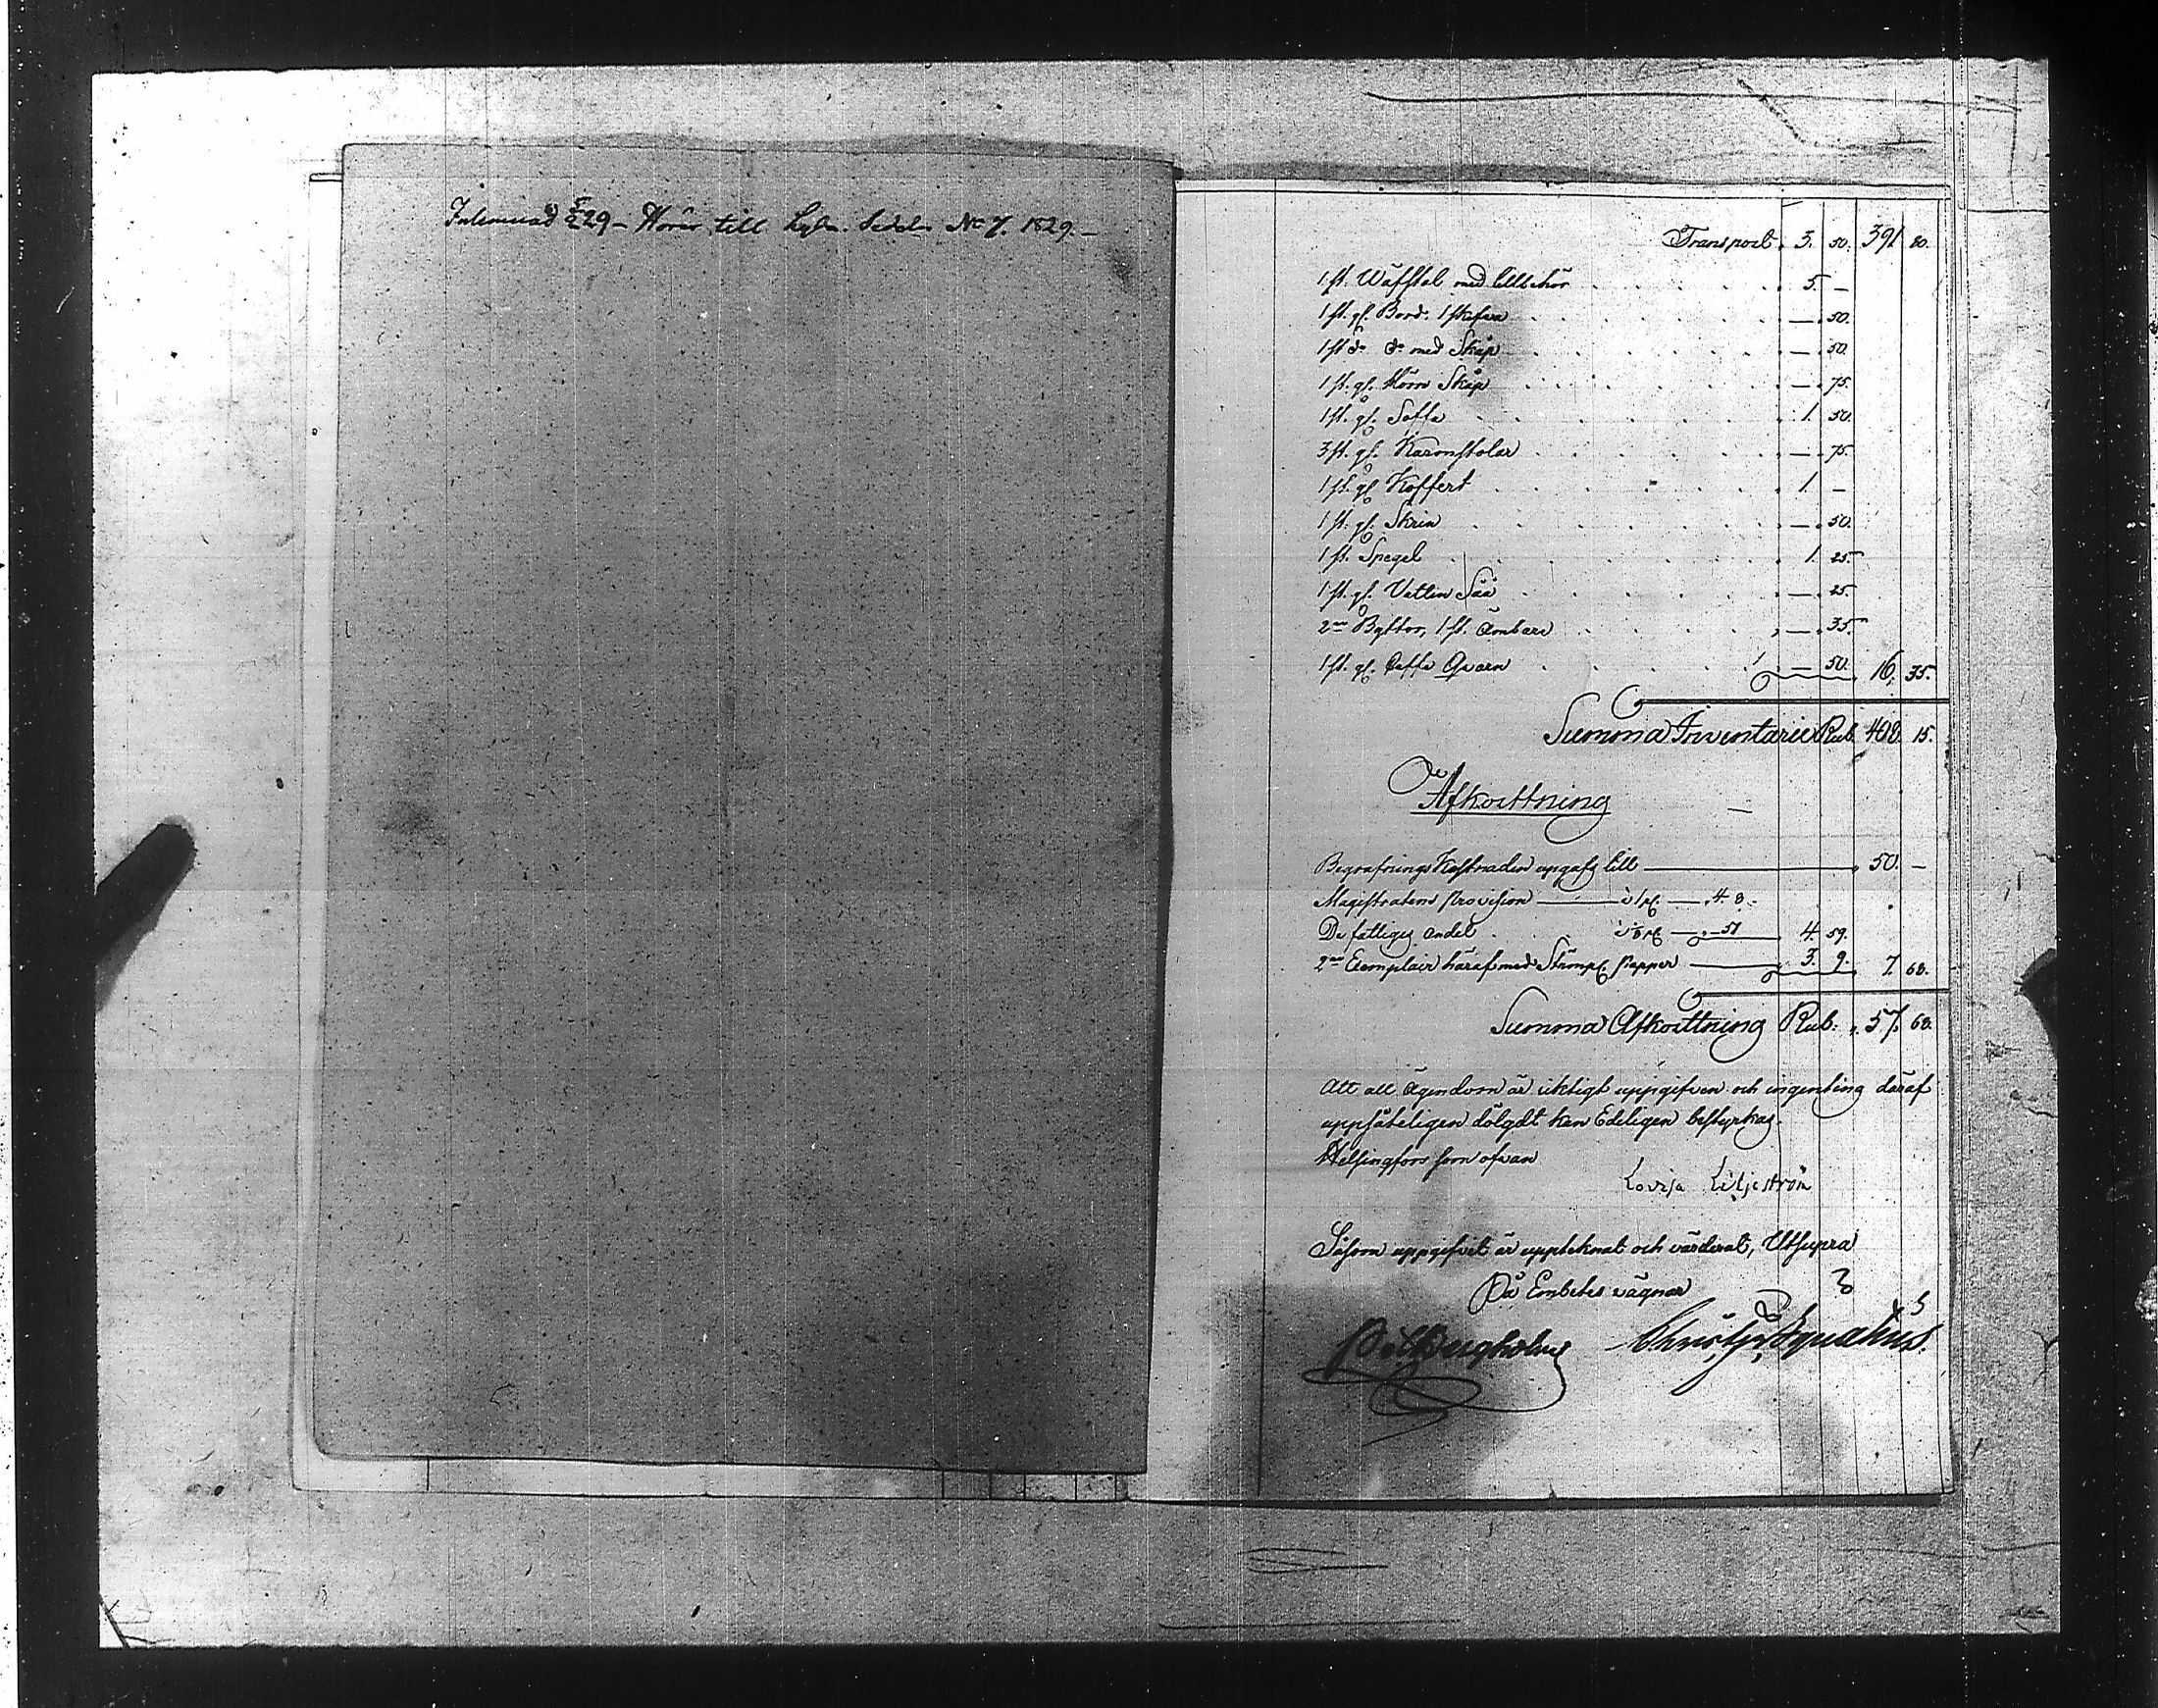 Hörer till No 7. 1829.
Transport. 3. 50. 391 80.
1 st. Wäfstol med tillbehör 5. –
1 st. gl. Bord. 1 skefva — 50.
1 st do do med Skåp — 50.
1 st. gl. Hörn Skåp — 75.
1 st. gl. Soffa 1. 50.
3 st. gl. Karmstolar — 75.
1 st. gl. Koffert 1. –
1 st. gl. Skrin — 50.
1 st. Spegel 1. 25
1 st. gl. Vatten Såå — 25
2ne Byttor, 1 st. Ämbare — 35.
1 st. gl. Caffe Qvarn — 50. 16. 35.
Summa Inventarii Rub. 408. 15.
Afkortning
Begrafnings Kostnaden upgafs till 50. –
Magistratens provision 4 8.
De fattiges andel — 51 4. 59.
2ne Exemplair häraf med Stämpl. papper 3. 9. 7. 68.
Summa Afkortning Rub: 57. 68.
Att all Ägendom är riktigt uppgifven och ingenting däraf
uppsåteligen dolgdt kan Edeligen bestyrkas.
Helsingfors som ofvan
Lovisa Liljeström
Såsom uppgifvit är uppteknat och värderat, Utsupra
På Embetes vägnar
Bergholm Christ. Ignatius.